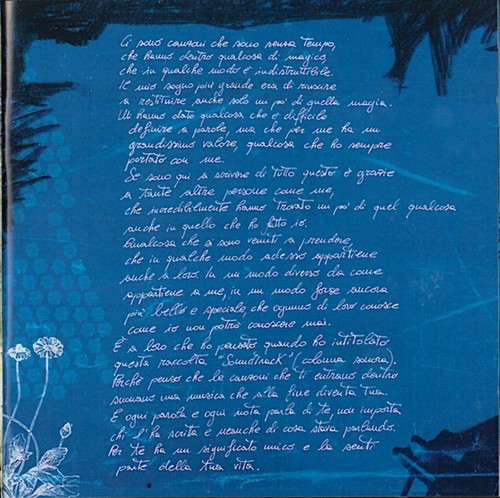 Ci sono canzoni che sono senza tempo,
che hanno dentro qualcosa di magico,
che in qualche modo è indistruttibile.
Il mio sogno più grande era di riuscire
a restituire anche solo un po' di quella magia.
Mi hanno dato qualcosa che è difficile
definire a parole, ma che per me ha un
grandissimo valore, qualcosa che ho sempre
portato con me.
Se sono qui a scrivere di tutto questo è grazie
a tante altre persone come me,
che incredibilmente hanno trovato un po' di quel qualcosa
anche in quello che ho fatto io.
Qualcosa che si sono venuti a prendere,
che in qualche modo adesso appartiene
anche a loro. In un modo diverso da come
appartiene a me, in un modo forse ancora
più bello e speciale, che ognuno di loro conosce
come io non potrò conoscere mai.
È a loro che ho pensato quando ho intitolato
questa raccolta "Soundtrack" (colonna sonora).
Perché penso che le canzoni che ti entrano dentro
suonano una musica che alla fine diventa tua.
E ogni parola e ogni nota parla di te, non importa
chi l'ha scritta e neanche di cosa stava parlando.
Per te ha un significato unico e la senti
parte della tua vita.